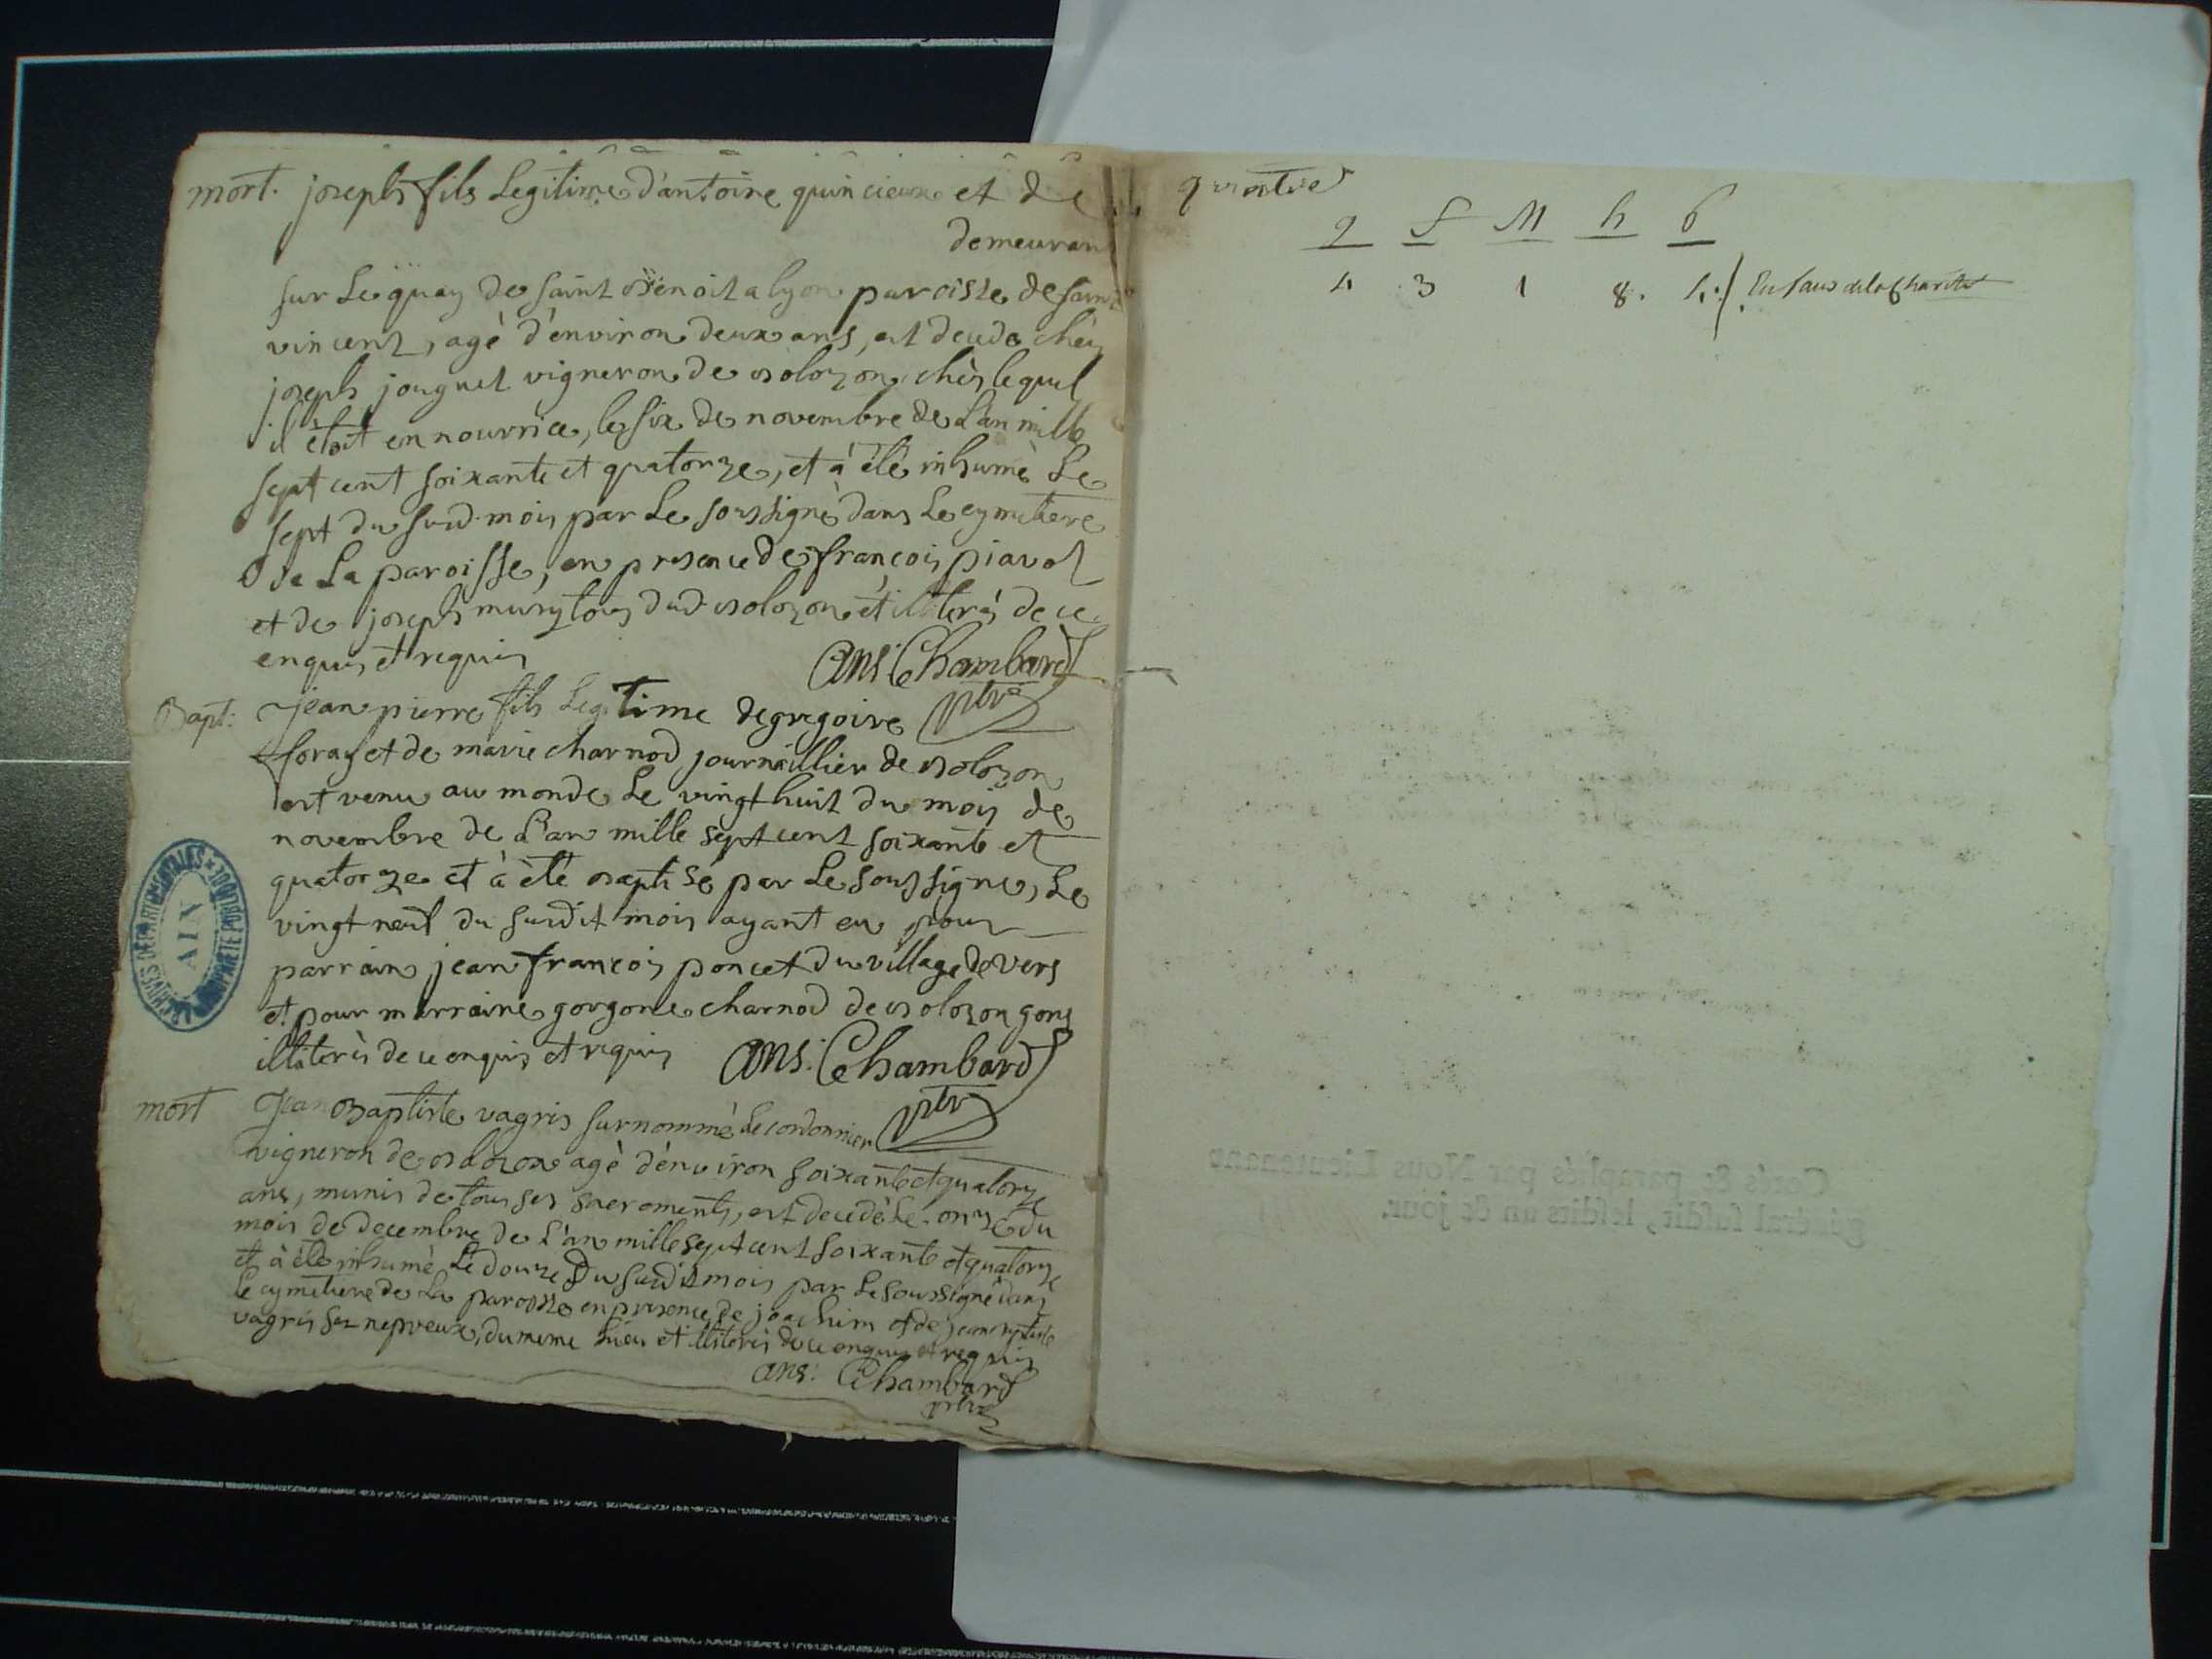 mort. joseph fils Legitime d'antoine quincieux et de
demeurant
sur Le quay de saint Benoit a lyon paroisse de saint
vincent, agé d'environ deux ans, est decede chés
joseph jouguet vigneron de Bolozon, chès lequel
il étoit en nourrice, le six de novembre de L'an mille
sept cent soixante et quatorze, et à été inhumé Le
sept du susd. mois par Le soussigné dans Le cymetiere
de La paroisse, en presence de françois piavot
et de joseph mury tous dud. Bolozon et illiterés de ce
enquis et requis
Ans: Chambard
ptre
Bapt: jean pierre fils Legitime de gregoire
foray et de marie charnod journallier de Bolozon
est venu au monde Le vingt huit du mois de
novembre de L'an mille sept cent soixante et
quatorze et à été Baptisé par Le soussigne, Le
vingt neuf du susdit mois ayant eu pour
parrain jean françois poncet du village de vers
et pour marraine gorgone charnod de Bolozon
illiterés de ce enquis et requis
Ans: Chambard
ptre
mort Jean Baptiste vagris surnommé Le cordonnier
vigneron de Bolozon agé d'environ soixante et quatorze
ans, munis de tous ses sacrements, est decedé Le onze du
mois de decembre de L'an mille sept cent soixante et quatorze
et à été inhumé Le douze du susdit mois par Le soussigné dans
le cymetiere de La paroisse en presence de joachim et de jean baptiste
vagris ses nepveux, du meme Lieu et illiterés de ce enquis et requis
Ans: Chambard
ptre
ARCHIVES DEPARTEMENTALES
AIN
PROPRIETE PUBLIQUE
g f M h
4 3 1 8. 4. Enfans de la Charité
Cotés & paraphés par Nous Lieutenant
général susdit, lesdits an & jour.